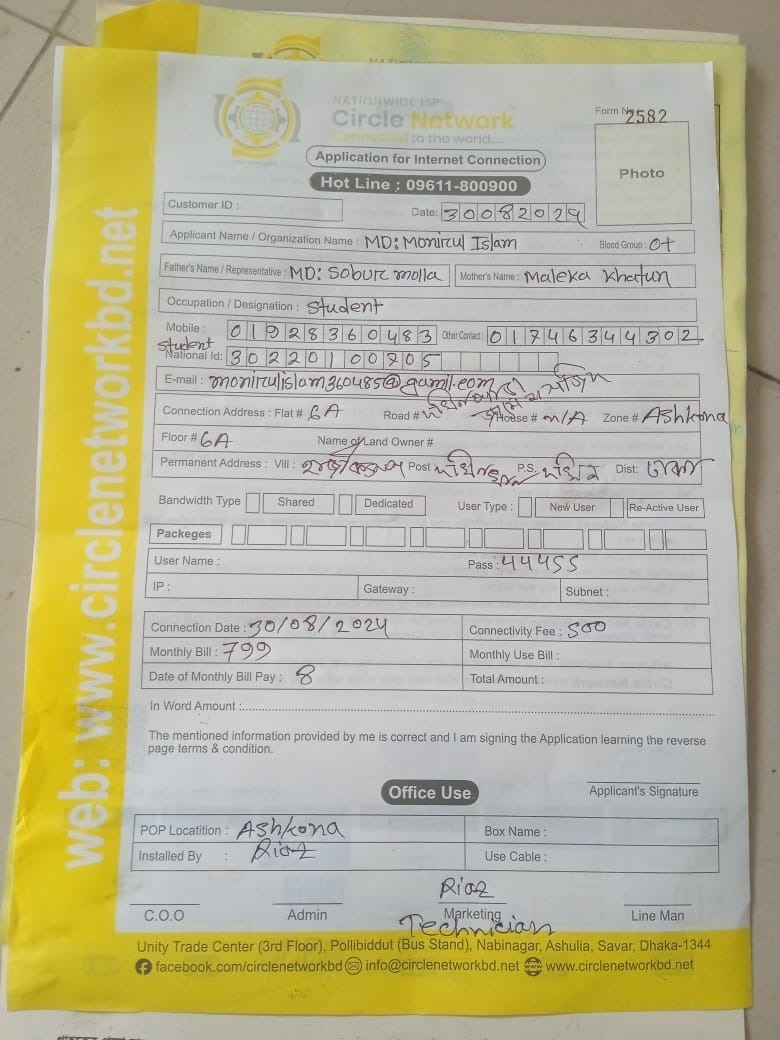 NATIONWIDE ISP
Circle Network
Connected to the world....
Form No 2582
Application for Internet Connection
Photo
Hot Line : 09611-800900
Customer ID :
Date: 30082024
Applicant Name / Organization Name : MD: Monirul Islam Blood Group : O+
Father's Name / Representative : MD: Sobur molla Mother's Name : Maleka Khatun
Occupation / Designation : Student
Mobile : 01928360483 Other Contact : 01746344302
Student
National Id: 30220100705
E-mail : monirulislam360485@gamil.com
Connection Address : Flat # 6A Road # House # n/A Zone # Ashkona
Floor # 6A Name of Land Owner #
Permanent Address : Vill : Post P.S. দক্ষিন Dist: ঢাকা
Bandwidth Type Shared Dedicated User Type : New User Re-Active User
Packeges
User Name : Pass : 44455
IP : Gateway : Subnet :
Connection Date : 30/08/2024 Connectivity Fee : 500
Monthly Bill : 799 Monthly Use Bill :
Date of Monthly Bill Pay : 8 Total Amount :
In Word Amount :
The mentioned information provided by me is correct and I am signing the Application learning the reverse
page terms & condition.
Office Use
Applicant's Signature
POP Locatition : Ashkona Box Name :
Installed By : Riaz Use Cable :
Riaz
C.O.O Admin Marketing Line Man
Technician
Unity Trade Center (3rd Floor), Pollibiddut (Bus Stand), Nabinagar, Ashulia, Savar, Dhaka-1344
facebook.com/circlenetworkbd info@circlenetworkbd.net www.circlenetworkbd.net
web: www.circlenetworkbd.net